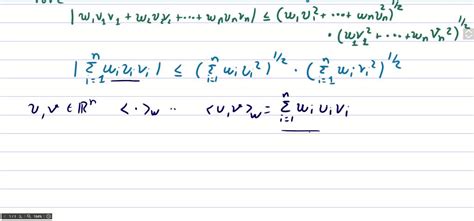 | w₁v₁v₁ + w₂v₂v₂ + ... + wₙvₙvₙ | ≤ (w₁v₁² + ... + wₙvₙ²)^1/2
· (w₁v₁² + ... + wₙvₙ²)^1/2
| Σ_{i=1}^n wᵢ υᵢ vᵢ | ≤ ( Σ_{i=1}^n wᵢ υᵢ² )^1/2 · ( Σ_{i=1}^n wᵢ vᵢ² )^1/2
υ, v ∈ ℝⁿ < · >_w .. < υ, v >_w = Σ_{i=1}^n wᵢ υᵢ vᵢ